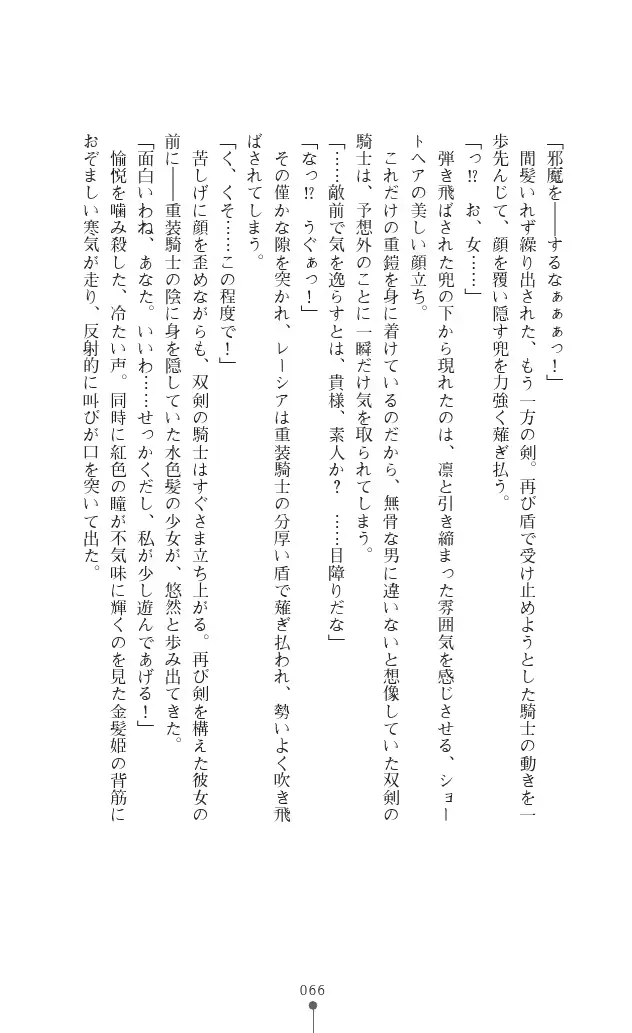 「邪魔を――するなぁぁぁっ！」
　間髪いれず繰り出された、もう一方の剣。再び盾で受け止めようとした騎士の動きを一
歩先んじて、顔を覆い隠す兜を力強く薙ぎ払う。
「っ!?　お、女……」
　弾き飛ばされた兜の下から現れたのは、凛と引き締まった雰囲気を感じさせる、ショー
トヘアの美しい顔立ち。
　これだけの重鎧を身に着けているのだから、無骨な男に違いないと想像していた双剣の
騎士は、予想外のことに一瞬だけ気を取られてしまう。
「……敵前で気を逸らすとは、貴様、素人か？　……目障りだな」
「なっ!?　うぐぁっ！」
　その僅かな隙を突かれ、レーシアは重装騎士の分厚い盾で薙ぎ払われ、勢いよく吹き飛
ばされてしまう。
「く、くそ……この程度で！」
　苦しげに顔を歪めながらも、双剣の騎士はすぐさま立ち上がる。再び剣を構えた彼女の
前に――重装騎士の陰に身を隠していた水色髪の少女が、悠然と歩み出てきた。
「面白いわね、あなた。いいわ……せっかくだし、私が少し遊んであげる！」
　愉悦を噛み殺した、冷たい声。同時に紅色の瞳が不気味に輝くのを見た金髪姫の背筋に
おぞましい寒気が走り、反射的に叫びが口を突いて出た。
066